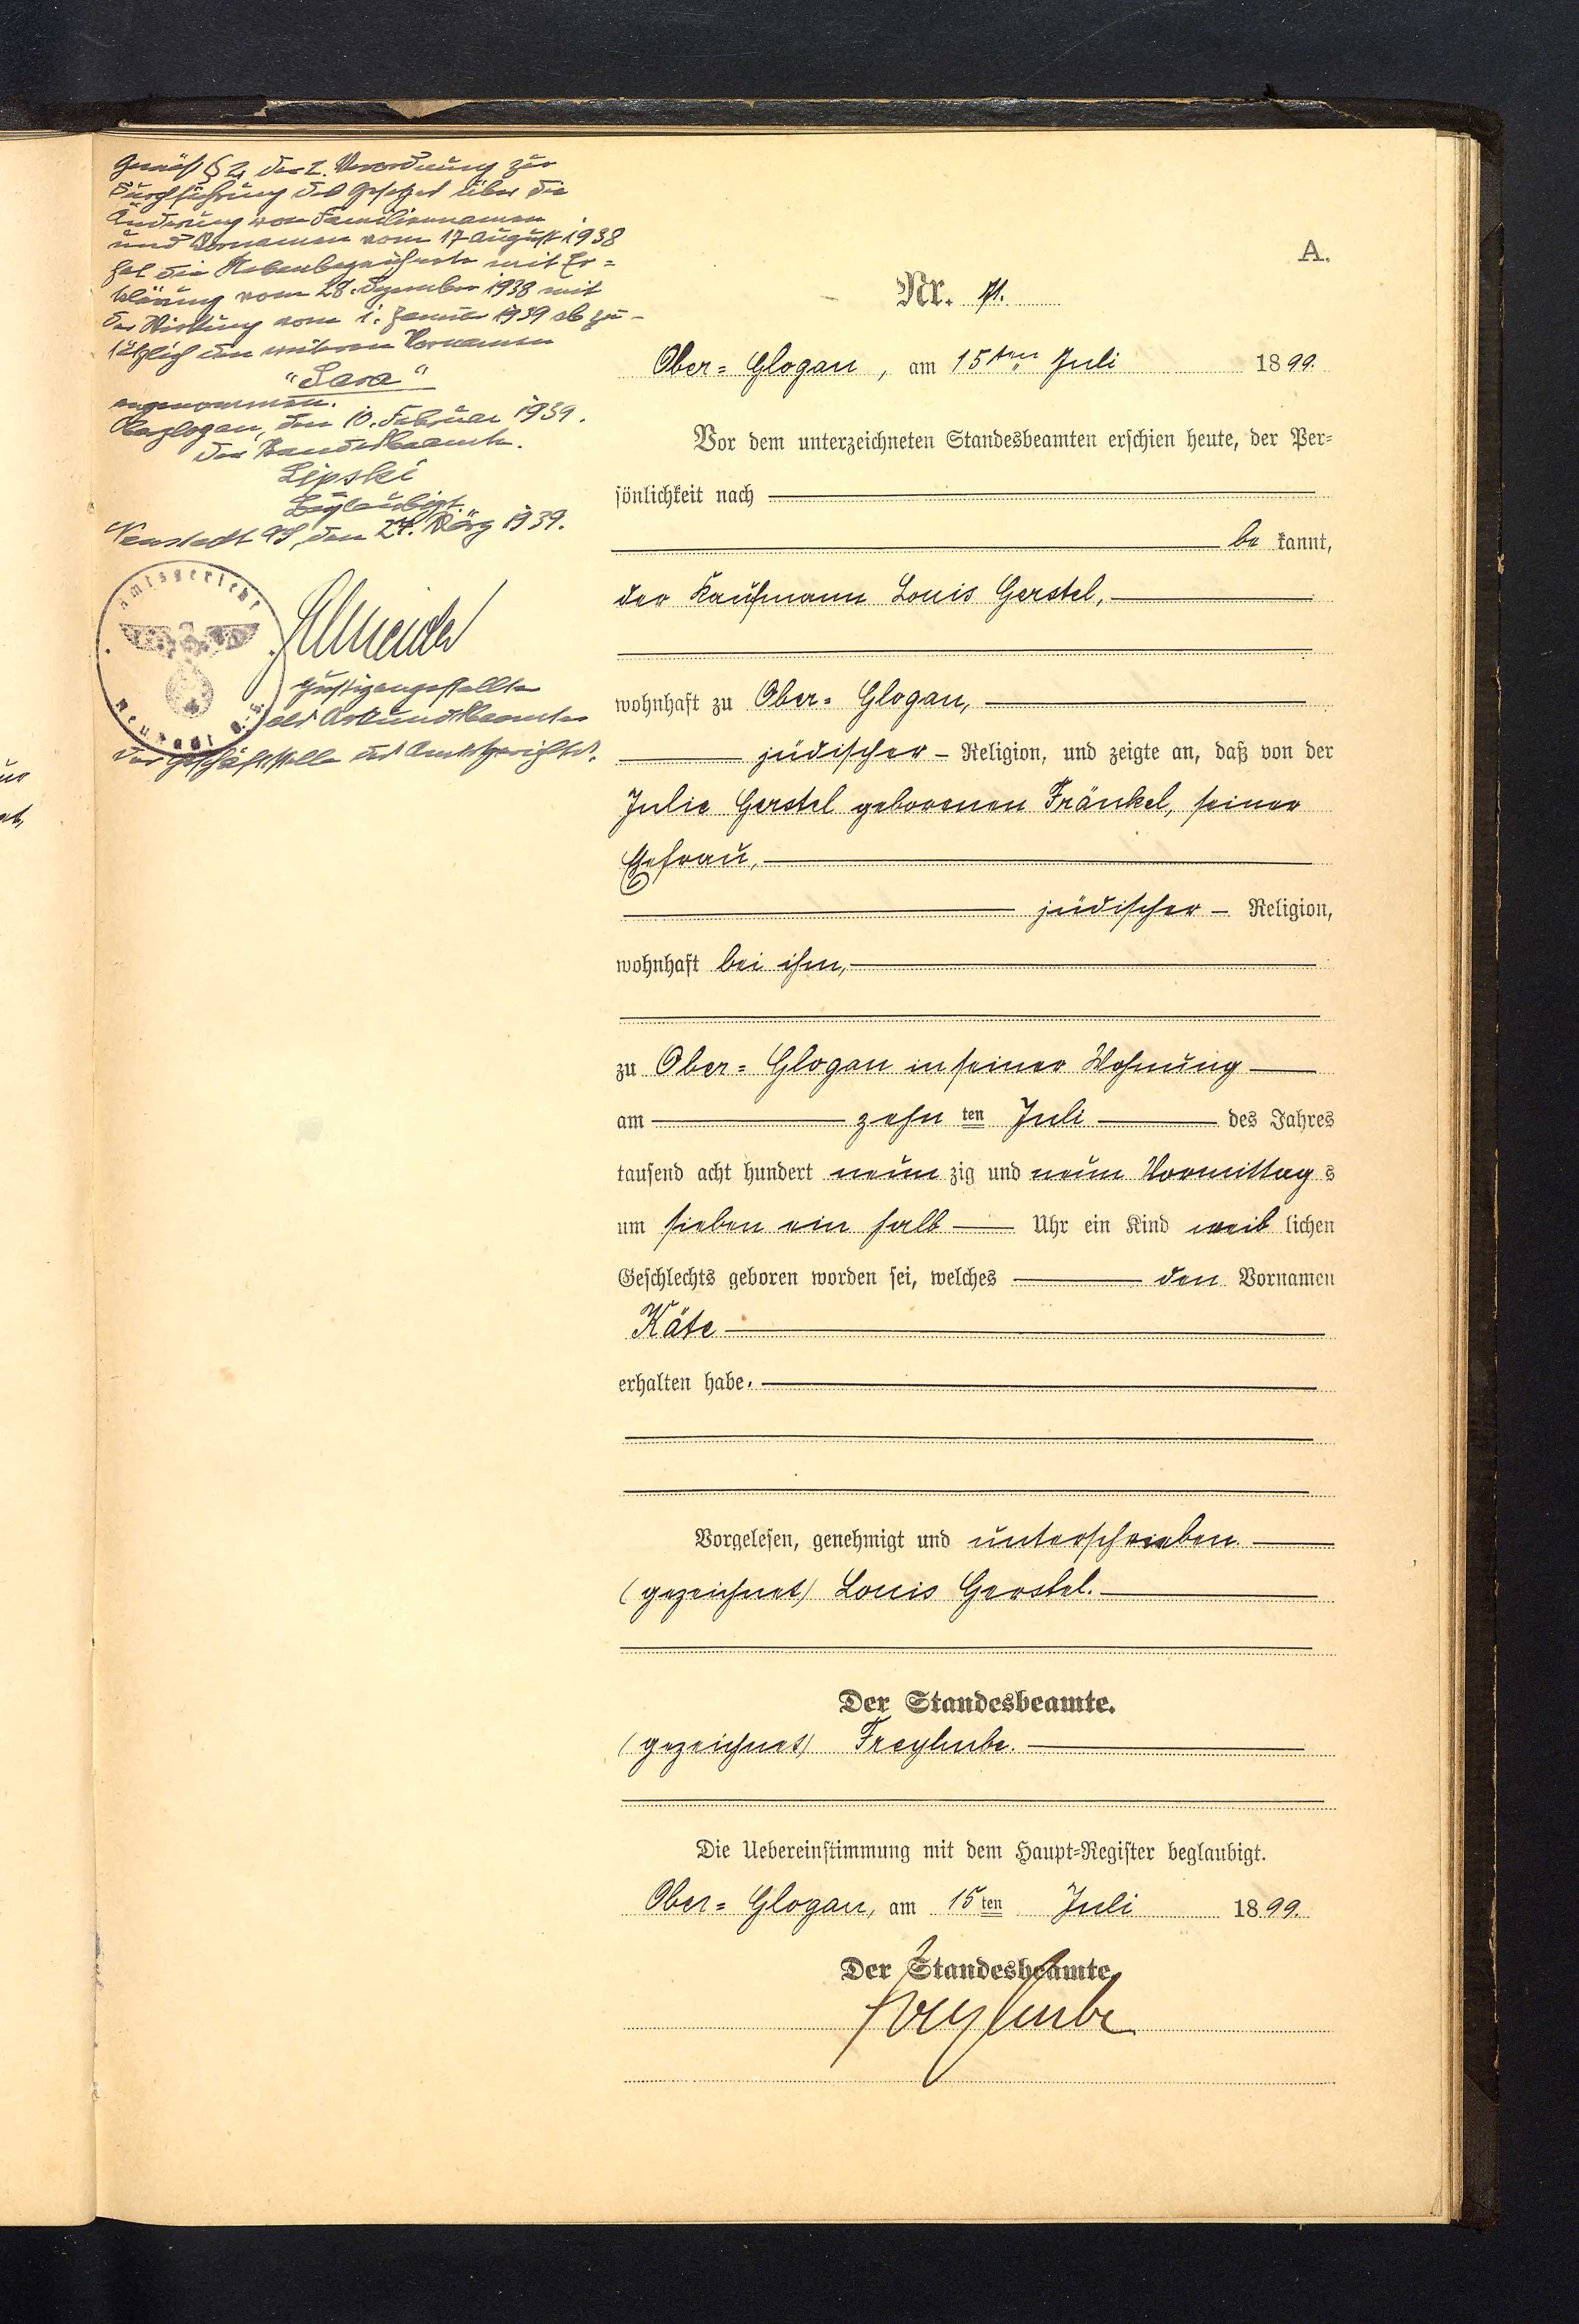 Gemäß § 2 der 2. Verordnung zur
Durchführung des Gesetzes über die
Änderung von Familiennamen
und Vornamen vom 17 August 1938
hat die Nebenbezeichnete mit Er=
klärung vom 28. Dezember 1938 mit
der Wirkung vom 1. Januar 1939 ab zu-
sätzlich den weiteren Vornamen
"Sara"
angenommen.
Oberglogau, den 10. Februar 1939.
Der Standesbeamte.
Lipski
Beglaubigt.
Neustadt OS, den 27. März 1939.
Amtsgericht
Neustadt O.S.
Schneider
Justizangestellter
als Urkundsbeamter
der Geschäftsstelle des Amtsgerichts.
A.
Nr. 71.
Ober= Glogau, am 15ten Juli 1899.
Vor dem unterzeichneten Standesbeamten erschien heute, der Per=
sönlichkeit nach
be kannt,
der Kaufmann Louis Gerstel,
wohnhaft zu Ober= Glogau,
jüdischer Religion, und zeigte an, daß von der
Julie Gerstel geborenen Fränkel, seiner
Ehefrau,
jüdischer Religion,
wohnhaft bei ihm,
zu Ober= Glogau in seiner Wohnung
am zehn ten Juli des Jahres
tausend acht hundert neun zig und neun Vormittag s
um sieben ein halb Uhr ein Kind weib lichen
Geschlechts geboren worden sei, welches den Vornamen
Käte
erhalten habe.
Vorgelesen, genehmigt und unterschrieben
(gezeichnet) Louis Gerstel.
Der Standesbeamte.
(gezeichnet) Freyhube.
Die Uebereinstimmung mit dem Haupt=Register beglaubigt.
Ober= Glogau, am 15 ten Juli 1899.
Der Standesbeamte
Freyhube